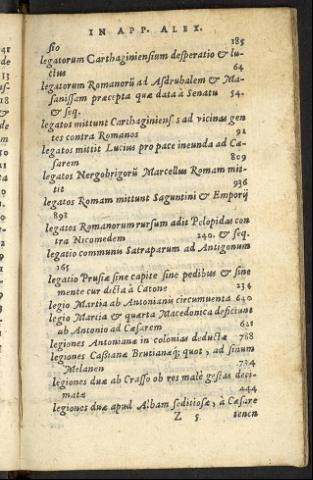 IN APP. ALEX.
sio 185
legatorum Carthaginiensium desperatio & lu-
ctus 64
legatorum Romanorũ ad Asdrubalem & Ma-
sanissam præcepta quæ data à Senatu 54.
& seq.
legatos mittunt Carthaginiens s ad vicinas gen
tes contra Romanos 91
legatos mittit Lucius pro pace ineunda ad Cæ-
sarem 809
legatos Nergobrigorũ Marcellus Romam mit-
tit 936
legatos Romam mittunt Saguntini & Emporij
898
legatos Romanorum rursum adit Pelopidas con
tra Nicomedem 240. & seq.
legatio communis Satraparum ad Antigonum
165
legatio Prusiæ sine capite sine pedibus & sine
mente cur dicta à Catone 234
legio Martia ab Antonianis circumuenta 640
legio Martia & quarta Macedonica deficiunt
ab Antonio ad Cæsarem 621
legiones Antonianæ in colonias deductæ 788
legiones Cassianæ Brutianæq; quot, ad sinum
Melanen 734
legiones duæ ab Crasso ob res malè gestas deci-
matæ 444
legiones duæ apud Albam seditiosæ, à Cæsare
Z 5 tenen